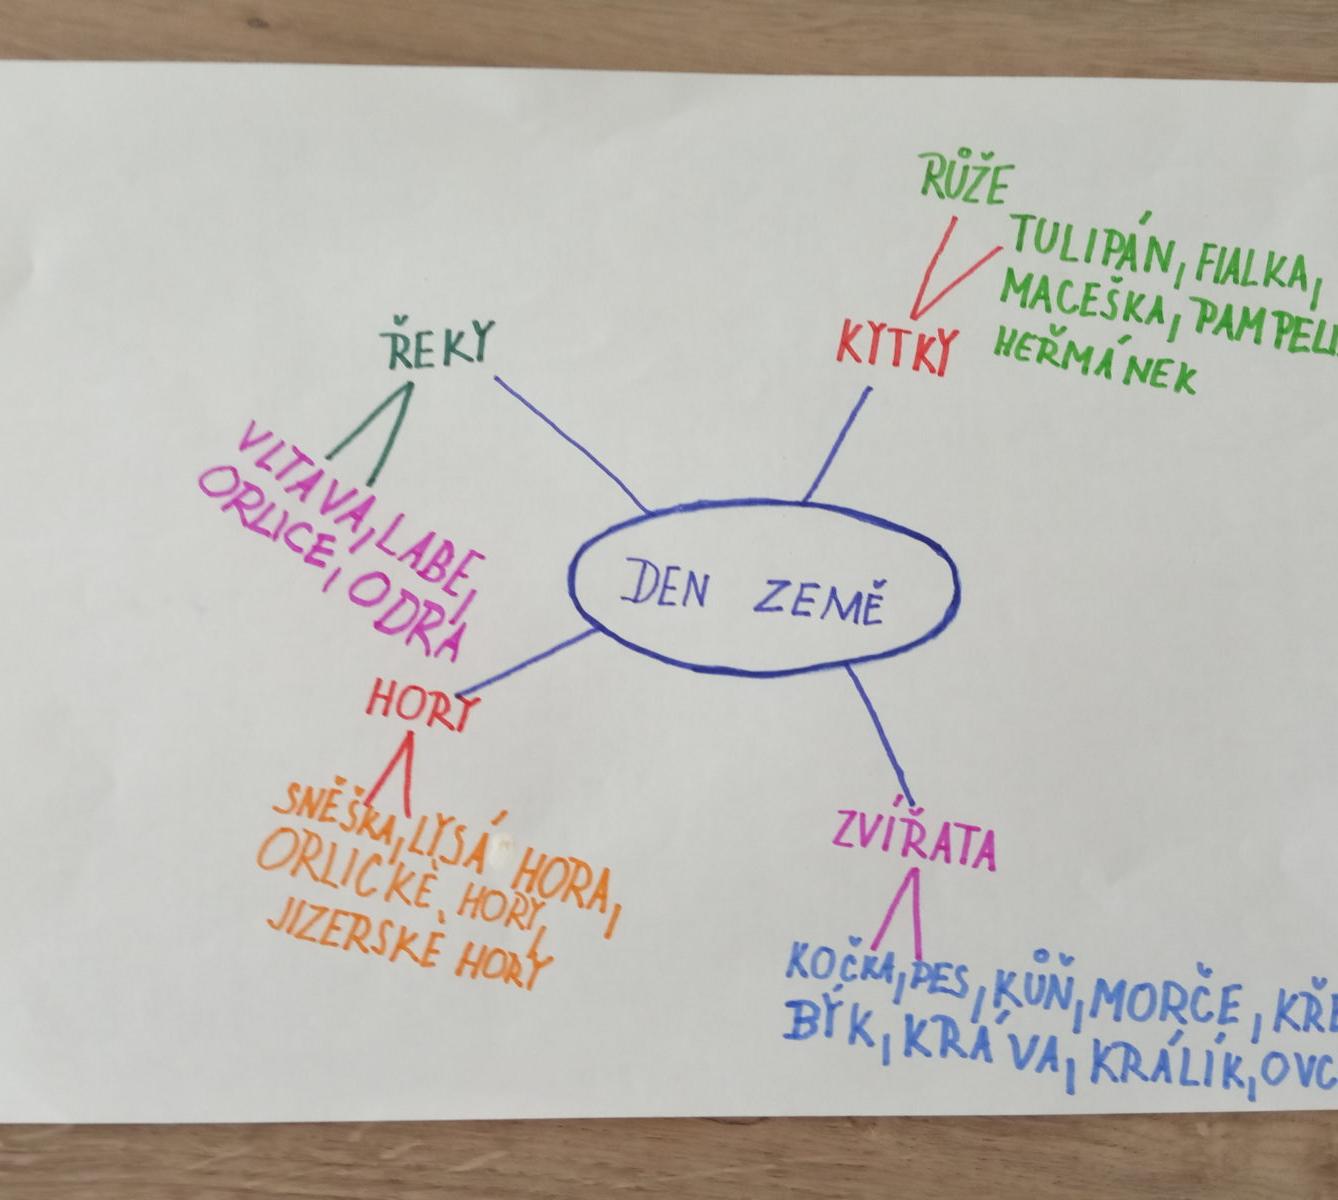 RŮŽE
TULIPÁN, FIALKA,
MACEŠKA, PAMPELI
HEŘMÁNEK
KYTKY
ŘEKY
VLTAVA, LABE,
ORLICE, ODRA
DEN ZEMĚ
HORY
SNĚŠKA, LYSÁ HORA,
ORLICKÉ HORY,
JIZERSKÉ HORY
ZVÍŘATA
KOČKA, PES, KŮŇ, MORČE, KŘE
BÝK, KRÁVA, KRÁLÍK, OVC